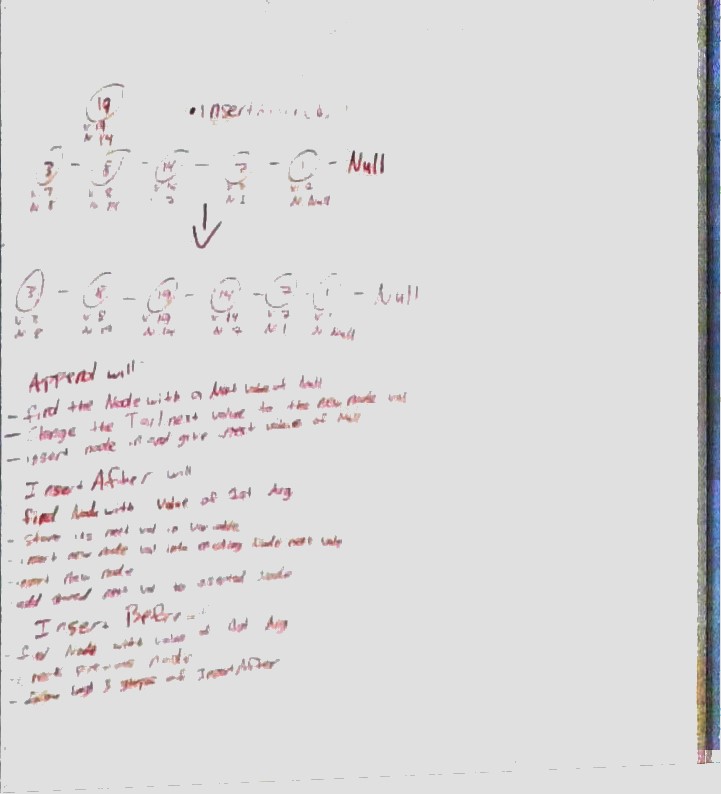 19
• insert
V: 19
N: 14
3 - 8 - 14 - 7 - 1 - Null
N: 8
N: 1
N: Null
3 - 8 - 19 - 14 - 7 - 1 - Null
V: 8 V: 19 V: 14 V: 7
N: 8 N: 19 N: 14 N: 7 N: 1 N: Null
Append will
- find the Node with a Next value of Null
- Change the Tail next value to the new node val
- insert node in and give next value of Null
Insert After will
find Node with Value of 1st Arg
- store its next val in variable
- insert new node val into existing Node next
- insert New node
add stored next val to inserted Node
Insert Before
- find Node with value of 1st Arg
- mark previous node
- follow last 3 steps of InsertAfter